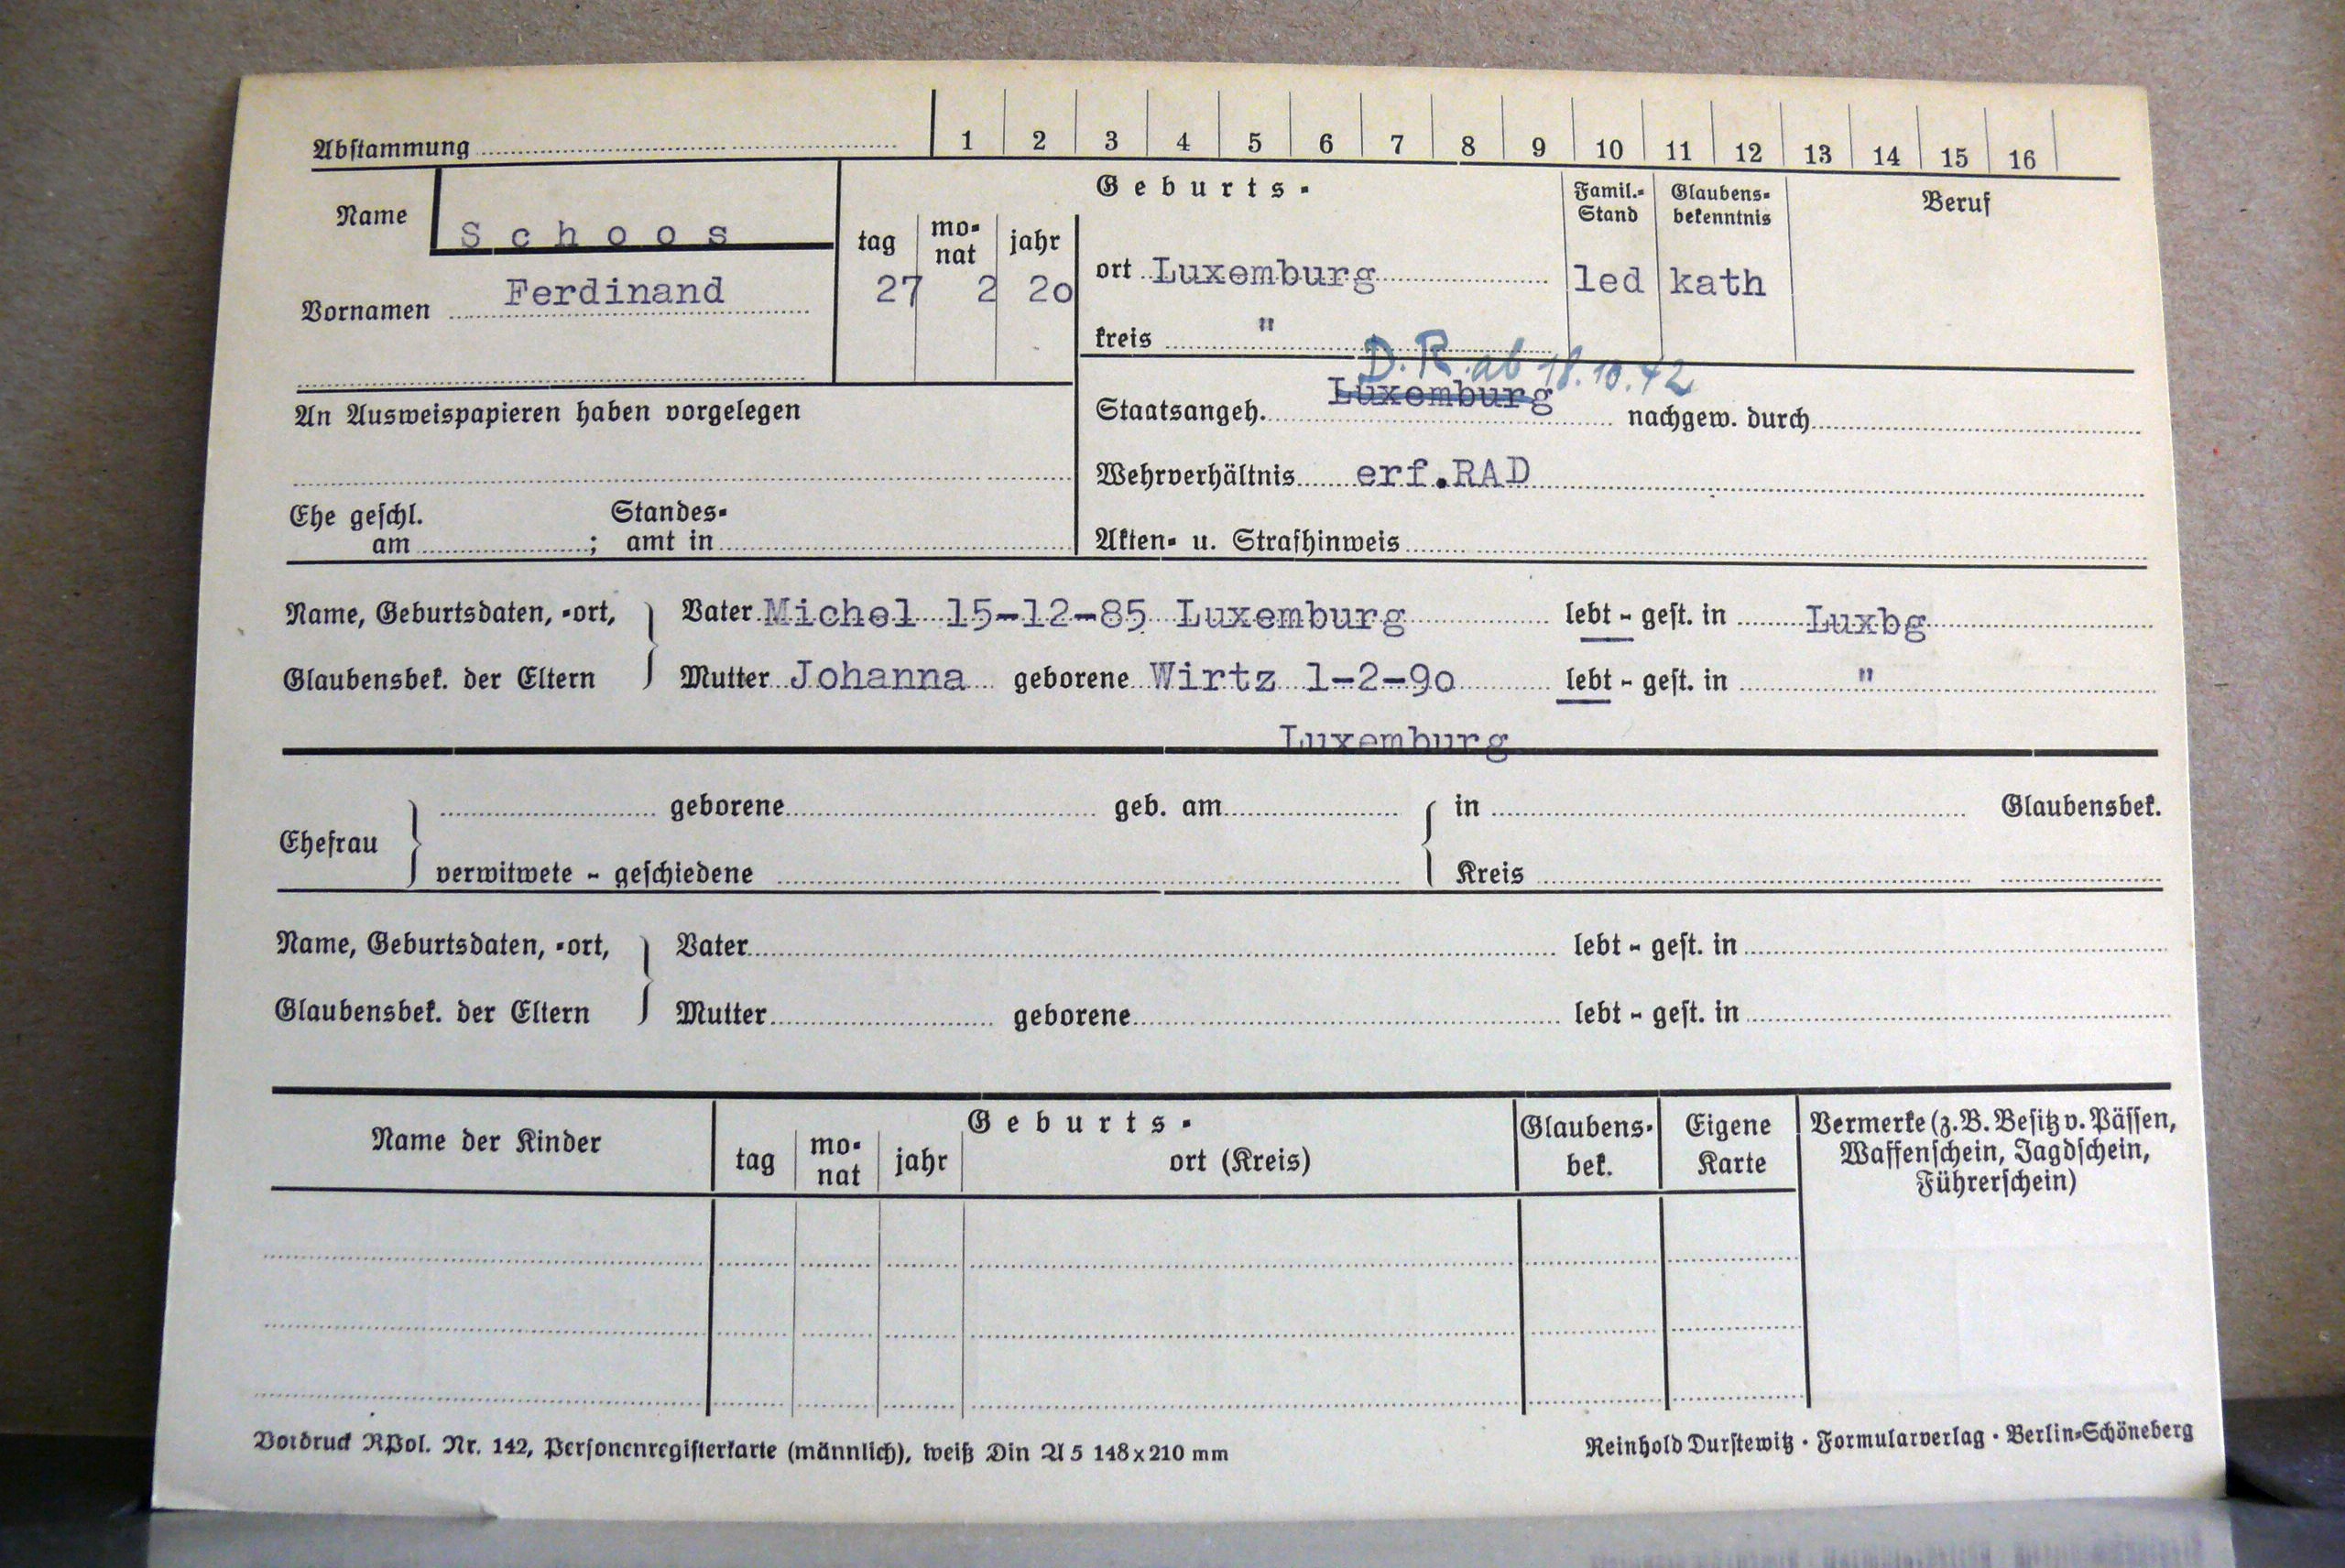 Abstammung 1 2 3 4 5 6 7 8 9 10 11 12 13 14 15 16
Name Schoos
Vornamen Ferdinand
Geburts-
tag monat jahr
27 2 20
ort Luxemburg
kreis "
Famil.-Stand
led
Glaubensbekenntnis
kath
Beruf
An Ausweispapieren haben vorgelegen
D.R. ab 18.10.42
Staatsangeh. Luxemburg nachgew. durch
Wehrverhältnis erf.RAD
Ehe geschl. am ; Standesamt in
Akten- u. Strafhinweis
Name, Geburtsdaten, -ort, Vater Michel 15-12-85 Luxemburg lebt - gest. in Luxbg
Glaubensbek. der Eltern Mutter Johanna geborene Wirtz 1-2-90 lebt - gest. in "
Luxemburg
Ehefrau geborene geb. am in Glaubensbek.
verwitwete - geschiedene Kreis
Name, Geburtsdaten, -ort, Vater lebt - gest. in
Glaubensbek. der Eltern Mutter geborene lebt - gest. in
Name der Kinder
Geburts-
tag monat jahr ort (Kreis)
Glaubensbek.
Eigene Karte
Vermerke (z.B. Besitz v. Pässen,
Waffenschein, Jagdschein,
Führerschein)
Vordruck RPol. Nr. 142, Personenregisterkarte (männlich), weiß Din A 5 148x210 mm
Reinhold Durstewitz · Formularverlag · Berlin-Schöneberg